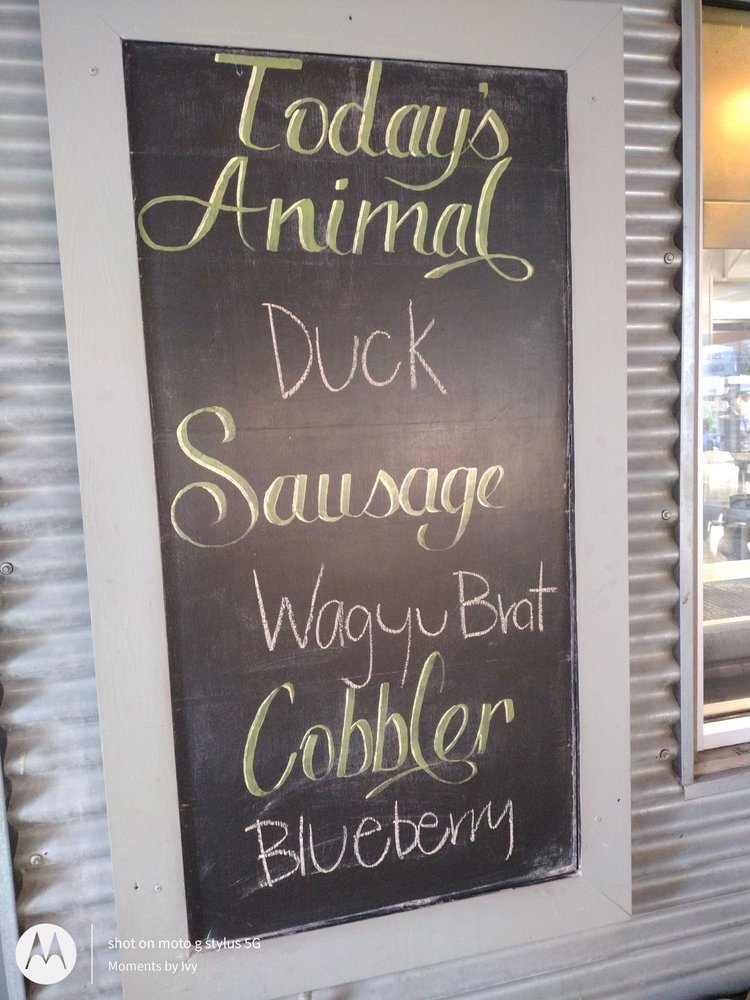 Today's
Animal
Duck
Sausage
Wagyu Brat
Cobbler
Blueberry
shot on moto g stylus 5G
Moments by Ivy